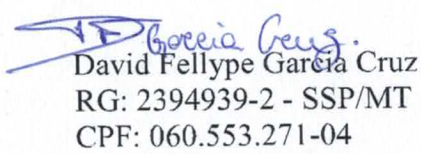 Garcia Cruz.
David Fellype Garcia Cruz
RG: 2394939-2 - SSP/MT
CPF: 060.553.271-04